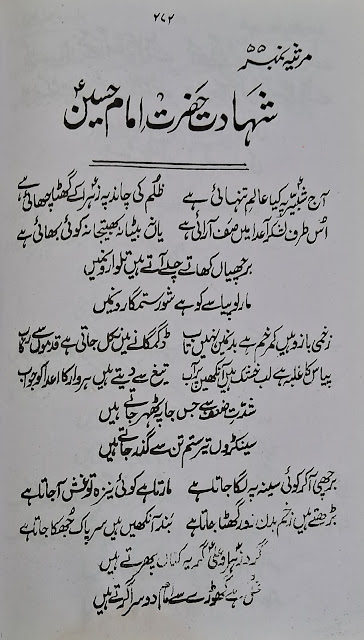 ۲۷۲
مرثیہ نمبر ۵۵
شہادت حضرت امام حسینؑ
آج شبیرؑ پہ کیا عالمِ تنہائی ہے ظلم کی چاند پہ زہراؑ کے گھٹا چھائی ہے
اُس طرف لشکرِ اعدا میں صف آرائی ہے یاں نہ بیٹا نہ بھتیجا نہ کوئی بھائی ہے
برچھیاں کھاتے چلے آتے ہیں تلواروں میں
مار لو پیاسے کو ہے شور ستمگاروں میں
زخمی بازو ہیں کمر خم ہے بدن میں نہیں تاب ڈگمگاتے ہیں نکل جاتی ہے قدموں سے رکاب
پیاس کا غلبہ ہے لب خشک ہیں آنکھیں پُر آب تیغ سے دیتے ہیں ہر وار کا اعدا کو جواب
شدتِ ضعف سے جس جا پہ ٹھہر جاتے ہیں
سینکڑوں تیر ستم تن سے گذر جاتے ہیں
برچھی آ کر کوئی سینہ پہ لگا جاتا ہے مارتا ہے کوئی نیزہ تو غش آ جاتا ہے
بڑھتے ہیں زخم بدن زور گھٹا جاتا ہے بند آنکھیں ہیں سر پاک جھکا جاتا ہے
گرد زہراؑ و علیؑ گریہ کناں پھرتے ہیں
غل ہے گھوڑے سے امامِ دوسرا گرتے ہیں